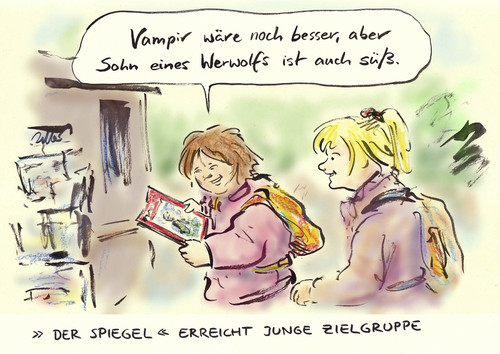 Vampir wäre noch besser, aber
Sohn eines Werwolfs ist auch süß.
» DER SPIEGEL « ERREICHT JUNGE ZIELGRUPPE